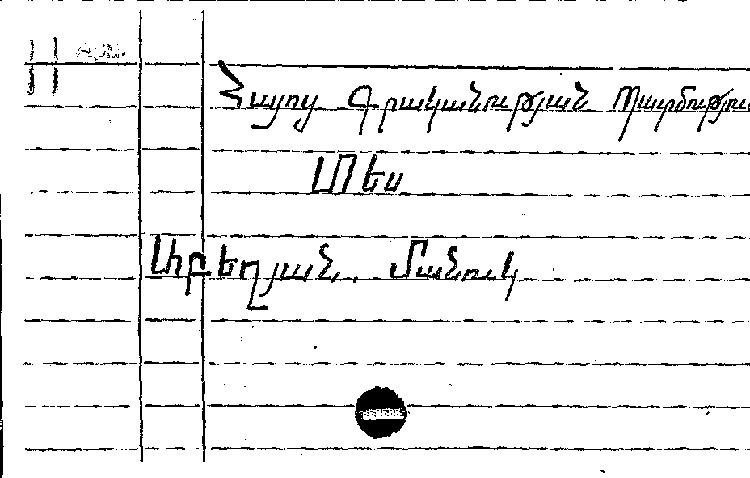 Հայոց Գրականության Պատմությու
Աբեղյան. Մանուկ